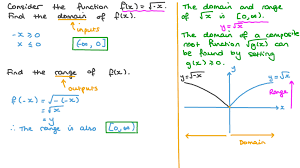 Consider the function f(x) = √-x.
Find the domain of f(x).
inputs
-x ≥ 0
x ≤ 0
(-∞, 0]
Find the range of f(x).
outputs
f(-x) = √-(-x)
= √x
= y
∴ The range is also [0,∞)
The domain and range
of √x is [0,∞).
y = √x
The domain of a composite
root function √g(x) can
be found by setting
g(x) ≥ 0.
y = √-x
y
y = √x
Range
x
Domain